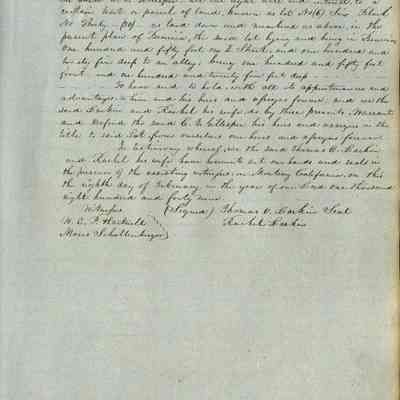 certain tract or parcel of land, known as lot No (6) Six Block
No Thirty (30) as laid down and numbered as above, in the
present plan of Benicia, the said lot lying and being in
one hundred and fifty feet on I Street, and one hundred and
twenty five deep to an alley; being one hundred and fifty feet
front and one hundred and twenty five feet deep
To have and to hold, with all its appurtenances and
advantages to him and his heirs and assigns forever, and we the
said Larkin and Rachel his wife do by these presents Warrant
and Defend the said C. V. Gillespie, his heirs and assigns in the
title to said Lot from ourselves our heirs and assigns forever
In testimony whereof, we the said Thomas O. Larkin
and Rachel his wife have hereunto set our hands and seals in
the presence of the attesting witnesses in Monterey California, on this
the eighth day of February in the year of our Lord one thousand
eight hundred and forty nine
Witness (Signed) Thomas O. Larkin Seal
W. E. P. Hartnell Rachel Larkin
Moses Schallenberger